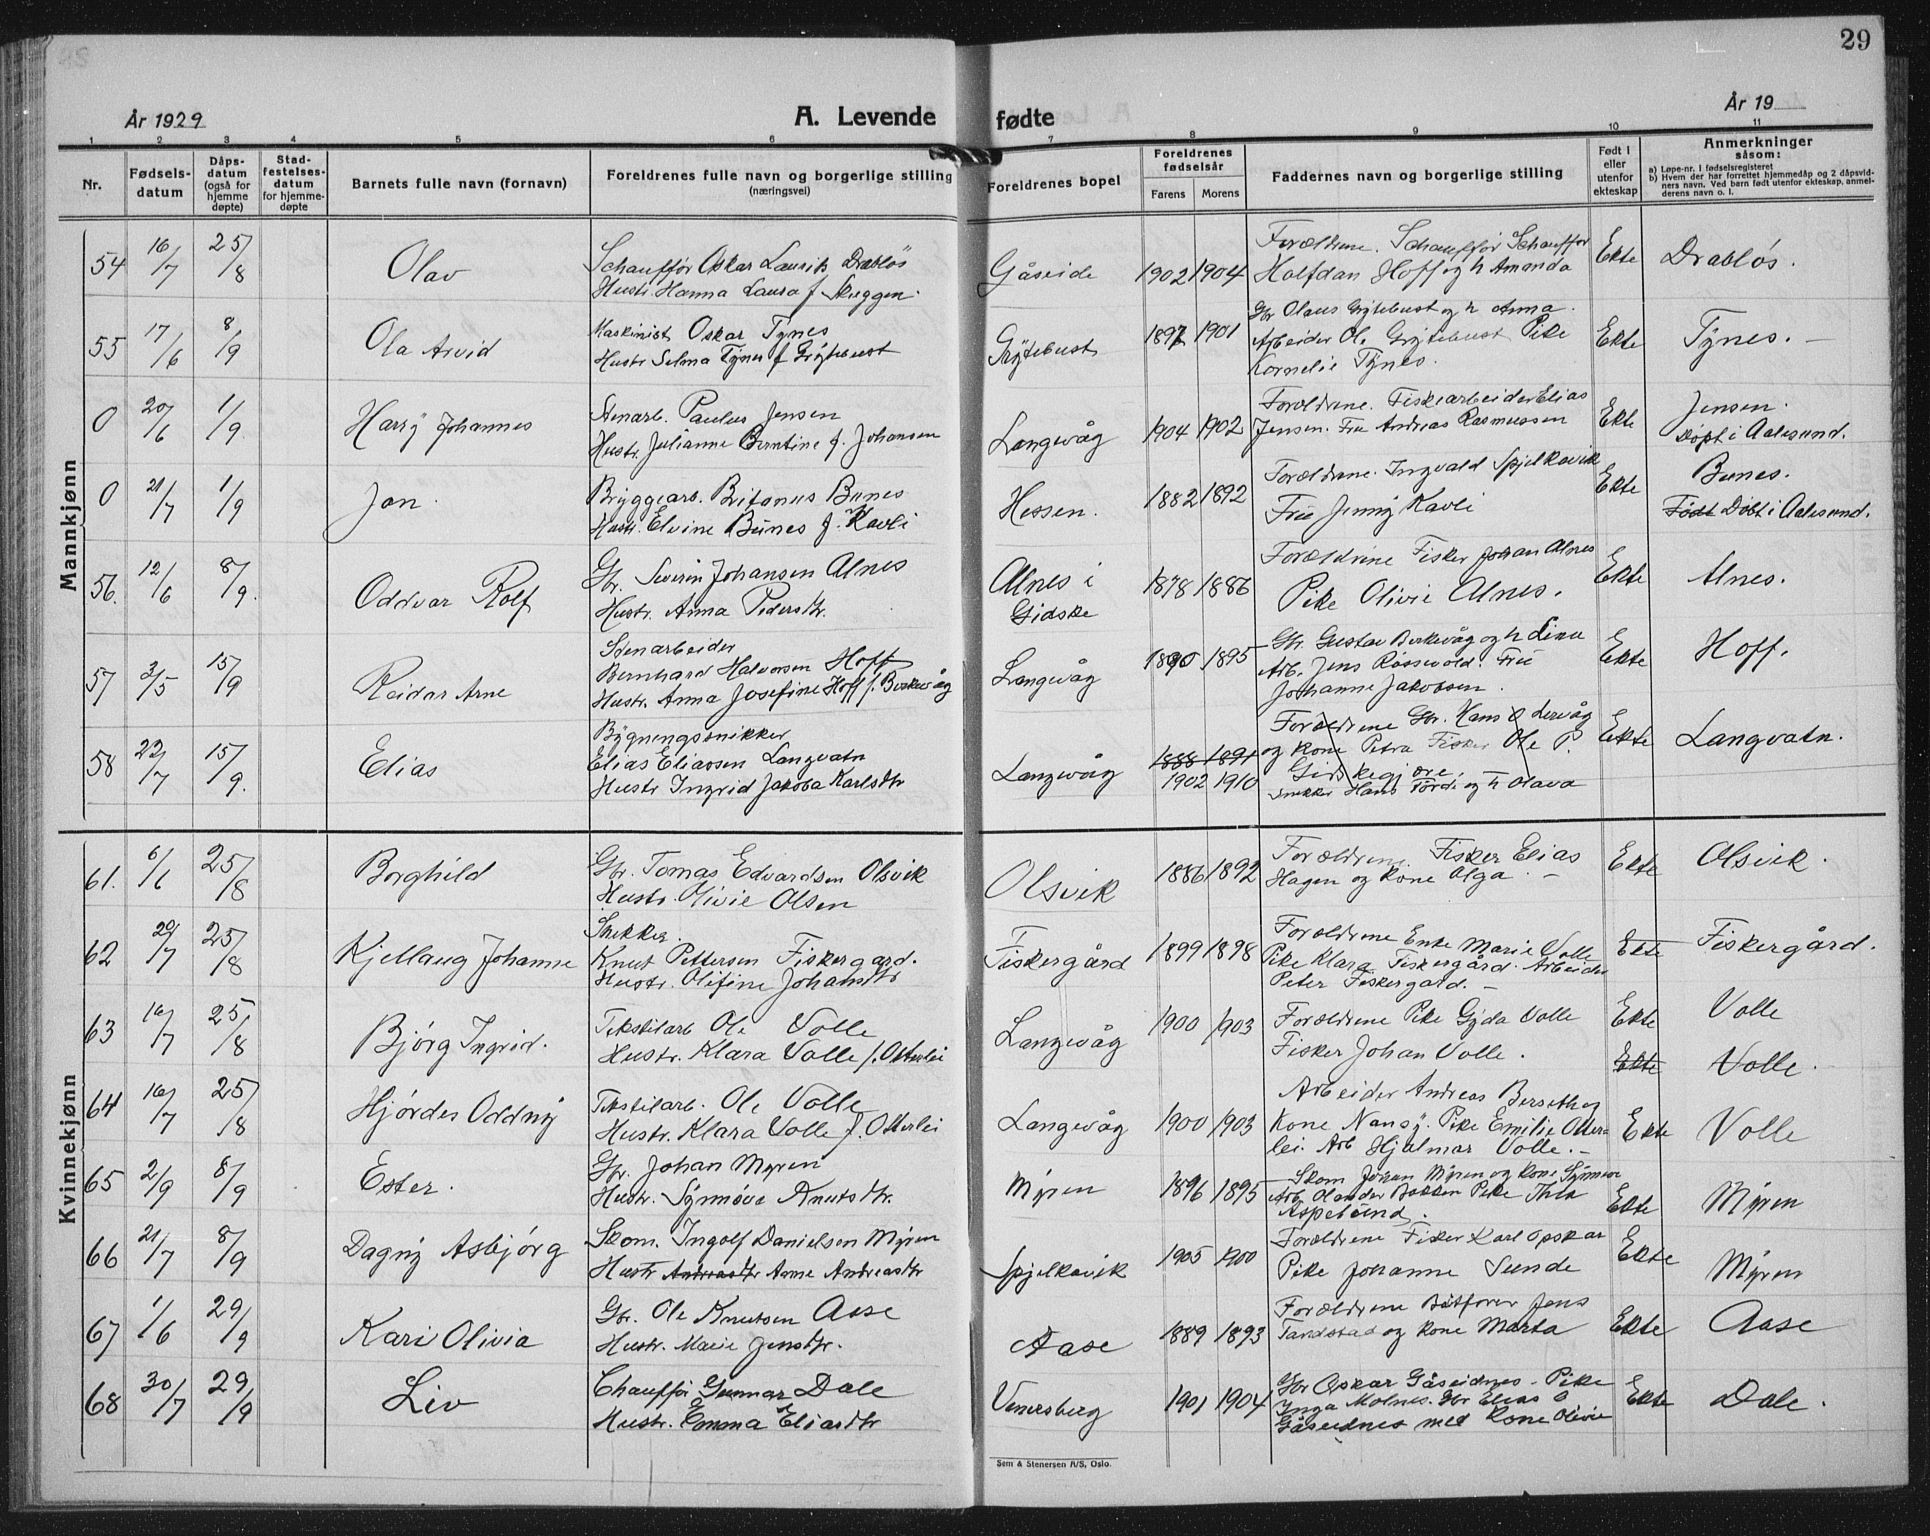 29
År 1929
A. Levende fødte
År 19
1 2 3 4 5 6 7 8 9 10 11
Nr.
Fødsels-
datum
Dåps-
datum
(også for
hjemme
døpte)
Stad-
festelses-
datum
for hjemme-
døpte
Barnets fulle navn (fornavn)
Foreldrenes fulle navn og borgerlige stilling
(næringsvei)
Foreldrenes bopel
Foreldrenes
fødselsår
Farens Morens
Faddernes navn og borgerlige stilling
Født i
eller
utenfor
ekteskap
Anmerkninger
såsom:
a) Løpe-nr. i fødselsregisteret
b) Hvem der har forrettet hjemmedåp og 2 dåpsvid-
ners navn. Ved barn født utenfor ekteskap, anmel-
derens navn o. l.
Mannkjønn
54 16/7 25/8 Olav
Schauffør Oskar Laurits Drabløs
Hustr. Hanna Laura f. Skeggen.
Gåseide 1902 1904
Forældrene. Schauffør Schauffør
Halfdan Hoff og h Amanda
Ekte Drabløs.
55 17/6 8/9 Ola Arvid
Maskinist Oskar Tynes
Hustr Selma Tynes f Grytebust
Grytebust 1897 1901
Gbr Olaus Grytebust og h Anna.
Arbeider Ole Grytebust Pike
Kornelie Tynes.
Ekte Tynes. –
0 20/6 1/9 Harry Johannes
Stenarb. Paulus Jensen
Hustr. Julianne Berntine f. Johansen
Langevåg 1904 1902
Forældrene. Fiskearbeider Elias
Jensen. Fru Andreas Rasmussen
Ekte Jensen.
Døpt i Aalesund.
0 21/7 1/9 Jan.
Bryggearb. Britanus Bunes
Hustr. Elvine Bunes f. Kavli
Hessen. 1882 1892
Forældrene. Ingvald Spjelkavik
Fru Jenny Kavli
Ekte Bunes.
Født Døbt i Aalesund.
56. 12/6 8/9. Oddvar Rolf
Gbr. Severin Johansen Alnes
Hustr. Anna Pedersdtr.
Alnes i
Gidske
1878 1886
Forældrene Fisker Johan Alnes
Pike Olivie Alnes.
Ekte Alnes.
57 3/5 15/9 Reidar Arne
Stenarbeider
Bernhard Halvorsen Hoff
Hustr. Anna Josefine Hoff f. Berkevåg
Langevåg 1890 1895
Gbr. Gustav Berkevåg og h Lina
Arb. Jens Røssevold. Fru
Johanne Jakobsen.
Ekte Hoff.
58 22/7 15/9. Elias
Bygningssnikker
Elias Eliassen Langvatn
Hustr Ingrid Jakoba Karlsdtr
Langevåg 1888 1891
1902 1910
Forældrene Gbr. Hans O Lervåg
og kone Petra Fisker Ole P.
Gidskegjøre.
Snekker Hans Førde og h Olava
Ekte Langvatn.
Kvinnekjønn
61. 6/6 25/8 Borghild
Gbr. Tomas Edvardsen Olsvik
Hustr. Olivie Olsen
Olsvik 1886 1892
Forældrene. Fisker Elias
Hagen og kone Olga. –
Ekte Olsvik.
62 20/7 25/8 Kjellaug Johanne
Snekker.
Knut Pettersen Fiskergård.
Hustr. Olifine Johansdtr
Fiskergård 1899 1898
Forældrene Enke Marie Volle
Pike Klara Fiskergård. Arbeider
Peter Fiskergård. –
Ekte Fiskergård.
63 16/7 25/8 Bjørg Ingrid.
Tekstilarb Ole Volle
Hustr. Klara Volle f. Otterlei
Langevåg 1900 1903
Forældrene Pike Gyda Volle
Fisker Johan Volle.
Ekte Volle
Ekte Volle.
64 16/7 25/8 Hjørdes Oddny
Tekstilarb. Ole Volle
Hustr. Klara Volle f. Otterlei
Langevåg 1900 1903
Arbeider Andreas Berseth og
kone Nansy. Pike Emilie Otter-
lei. Arb Hjalmar Volle. –
Ekte Volle
65 2/9 8/9 Ester.
Gbr. Johan Myren
Hustr. Synnøve Knutsdtr.
Myren 1896 1895
Skom Johan Myren og kone Synnøve
Arb. Olander Bakken Pike Thea
Aspelund.
Ekte Myren
66 21/7 8/9 Dagny Asbjørg
Skom. Ingolf Danielsen Myren
Hustr Andreasdtr Anne Andreasdtr
Spjelkavik 1905 1900
Forældrene Fisker Karl Opskar
Pike Johanne Sunde
Ekte Myren
67 1/6 29/9 Kari Olivia
Gbr. Ole Knutsen Aase
Hustr. Marie Jensdtr.
Aase 1889 1893
Forældrene Båtfører Jens
Tandstad og kone Marta
Ekte Aase
68 30/7 29/9 Liv
Chauffør Gunnar Dale
Hustr. Emma Eliasdtr
Venersberg 1901 1904
Gbr Oskar Gåseidnes. Pike
Inga Molnes. Gbr Elias O
Gåseidnes med kone Olivie
Ekte Dale.
Sem & Stenersen A/S, Oslo.